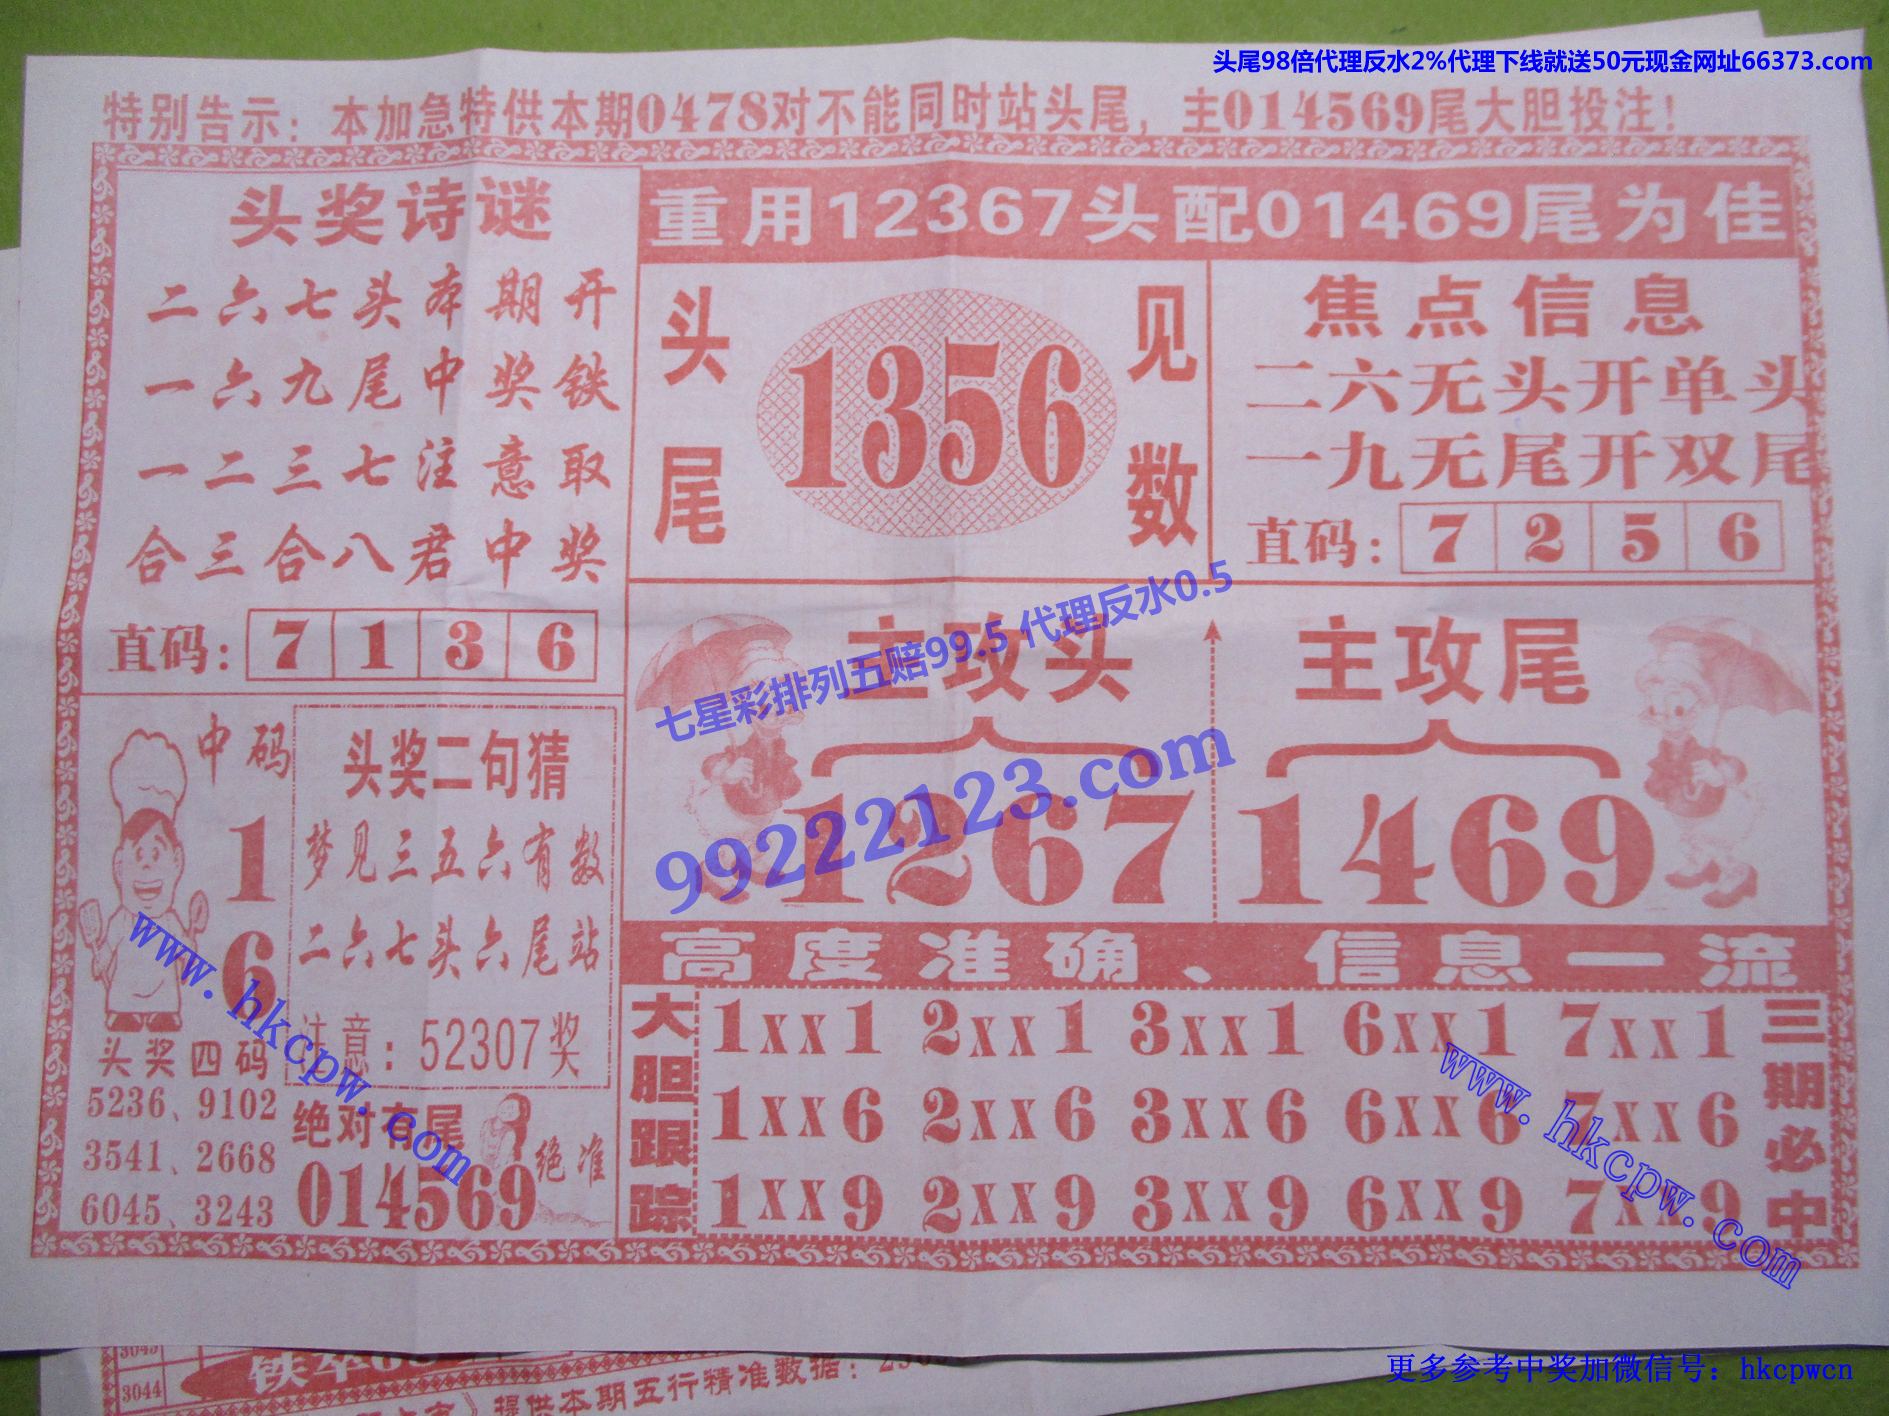 头尾98倍代理反水2%代理下线就送50元现金网址66373.com
特别告示：本加急特供本期0478对不能同时站头尾，主014569尾大胆投注！
头奖诗谜
二六七头本期开
一六九尾中奖铁
一二三七注意取
合三合八君中奖
直码：7 1 3 6
重用12367头配01469尾为佳
头尾
1356
见数
焦点信息
二六无头开单头
一九无尾开双尾
直码：7 2 5 6
主攻头
1267
主攻尾
1469
七星彩排列五赔99.5 代理反水0.5
99222123.com
中码
1
6
头奖四码
5236、9102
3541、2668
6045、3243
头奖二句猜
梦见三五六有数
二六七头六尾站
注意：52307奖
绝对有尾
014569
绝准
高度准确、信息一流
大胆跟踪
1XX1 2XX1 3XX1 6XX1 7XX1
1XX6 2XX6 3XX6 6XX6 7XX6
1XX9 2XX9 3XX9 6XX9 7XX9
三期必中
www.hkcpw.com
www.hkcpw.com
3043
3044
提供本期五行精准数据：
更多参考中奖加微信号：hkcpwcn